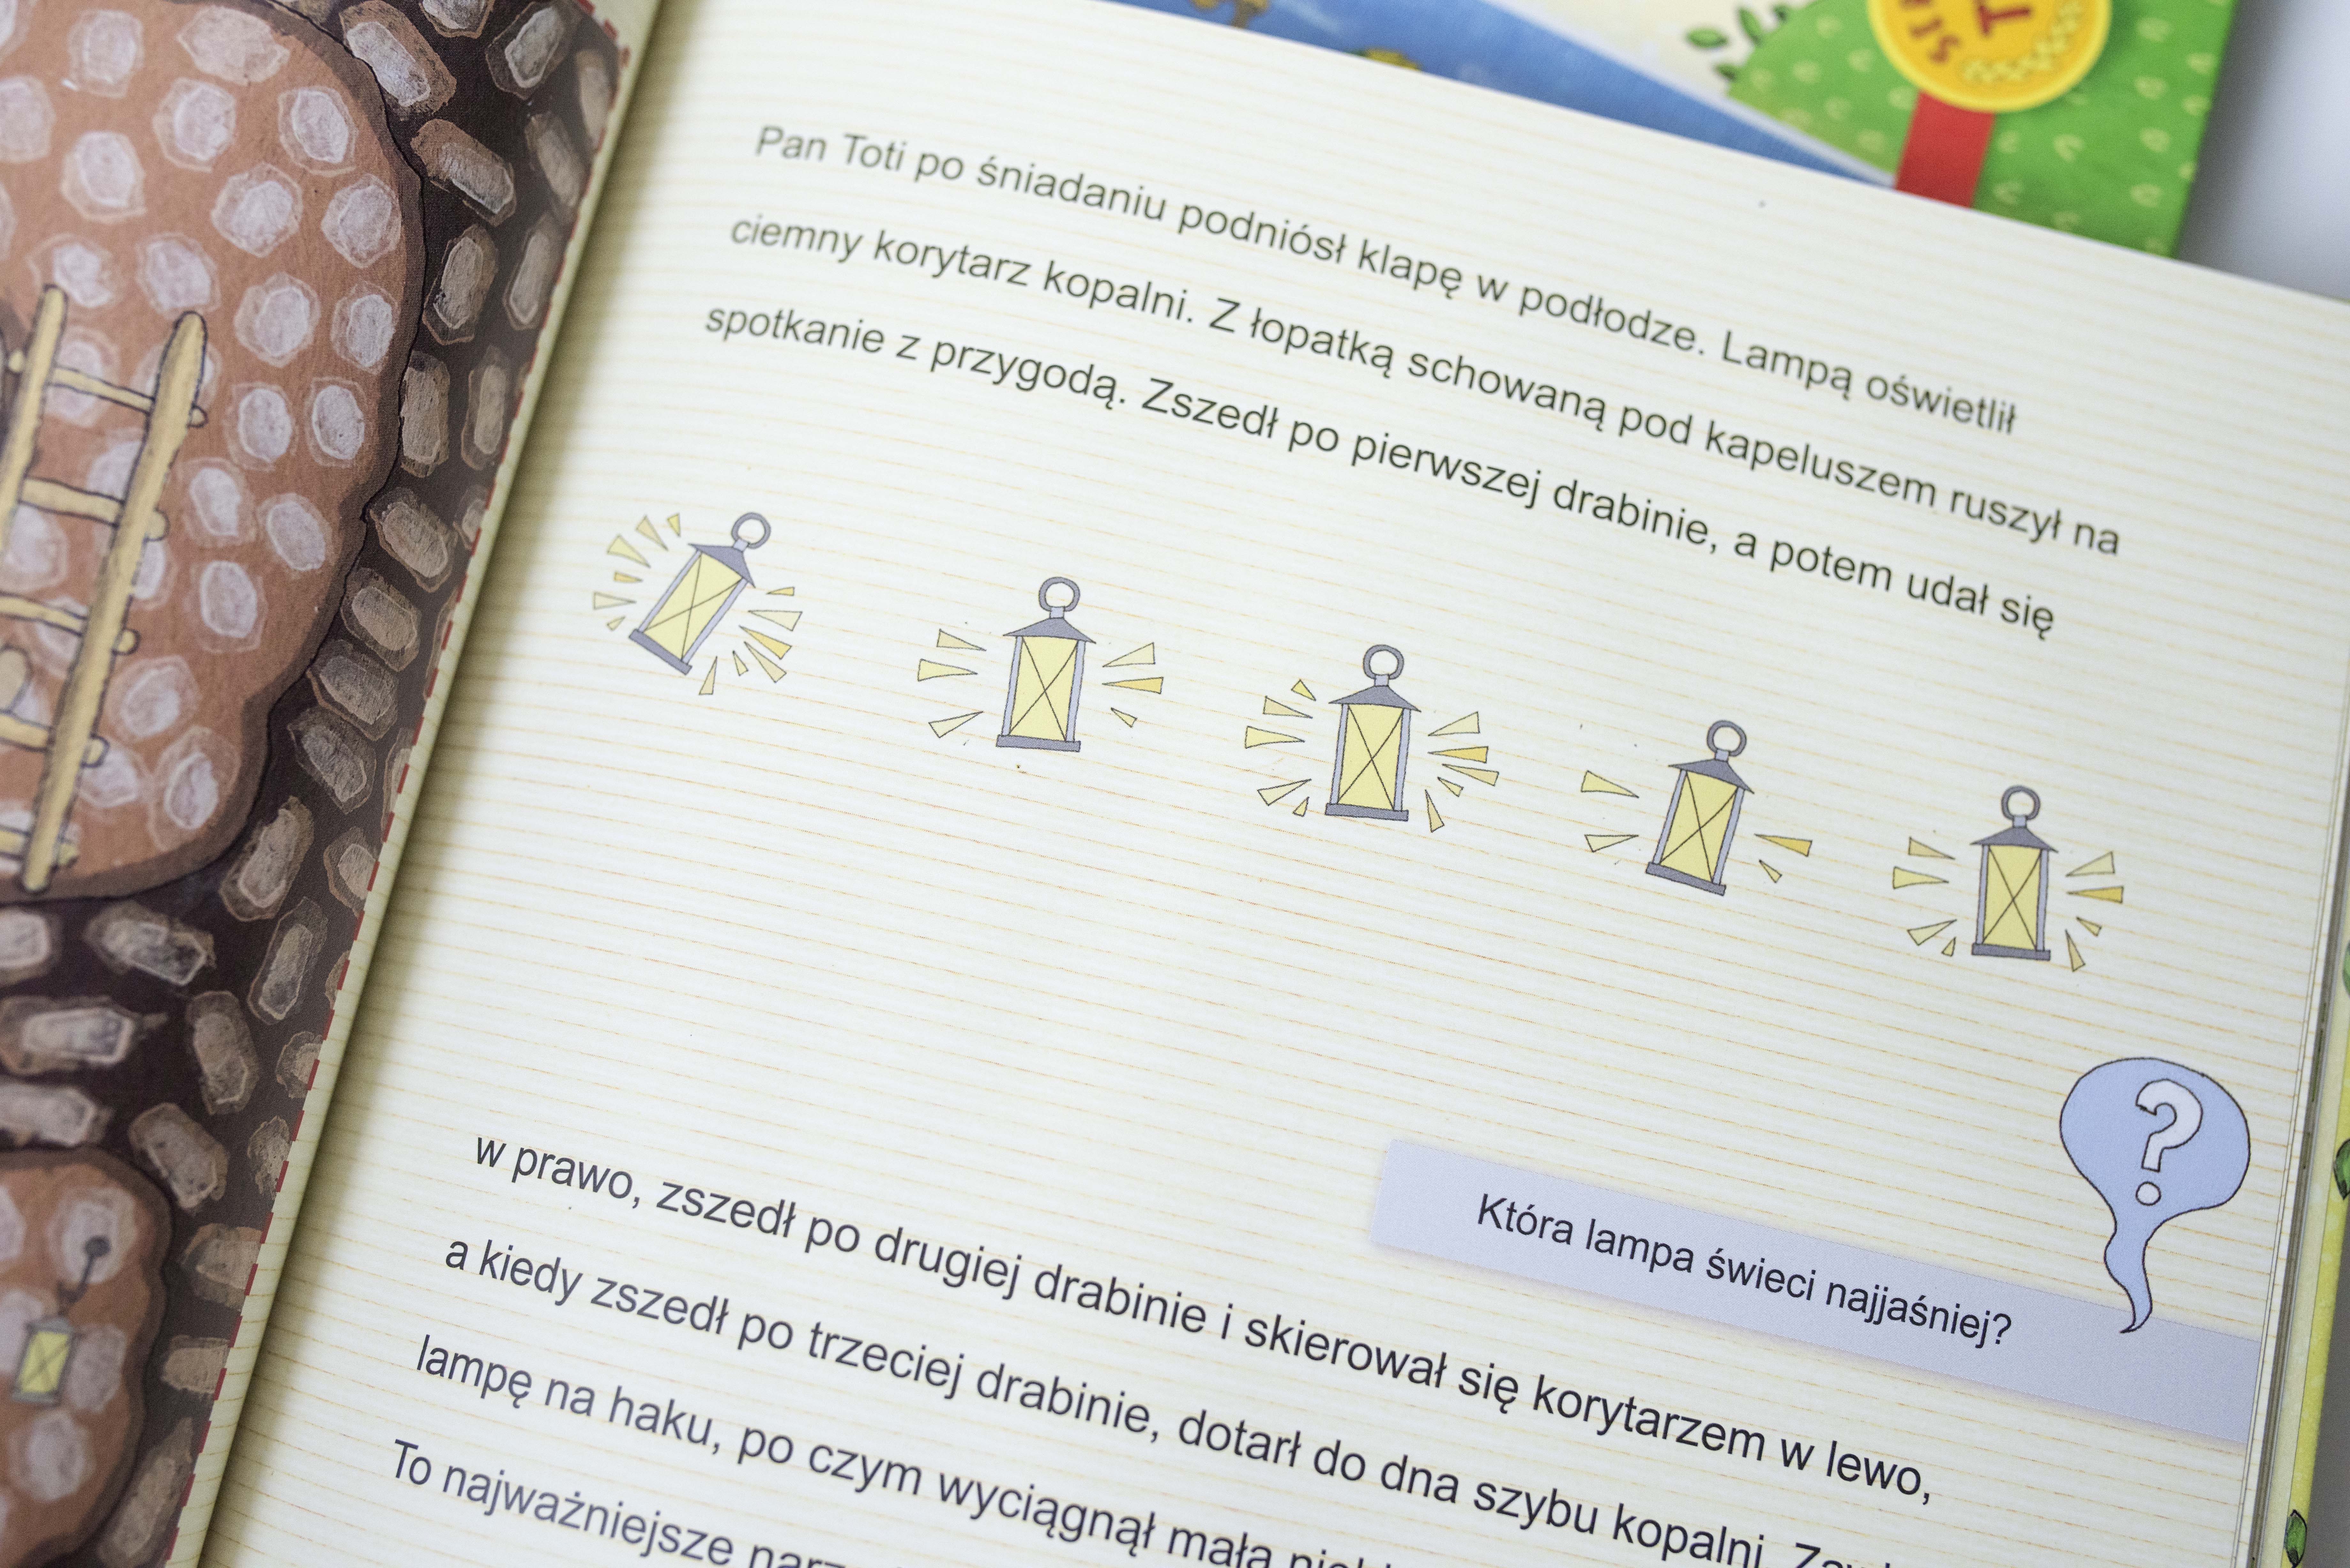 Pan Toti po śniadaniu podniósł klapę w podłodze. Lampą oświetlił
ciemny korytarz kopalni. Z łopatką schowaną pod kapeluszem ruszył na
spotkanie z przygodą. Zszedł po pierwszej drabinie, a potem udał się
?
Która lampa świeci najjaśniej?
w prawo, zszedł po drugiej drabinie i skierował się korytarzem w lewo,
a kiedy zszedł po trzeciej drabinie, dotarł do dna szybu kopalni.
lampę na haku, po czym wyciągnął małą
To najważniejsze